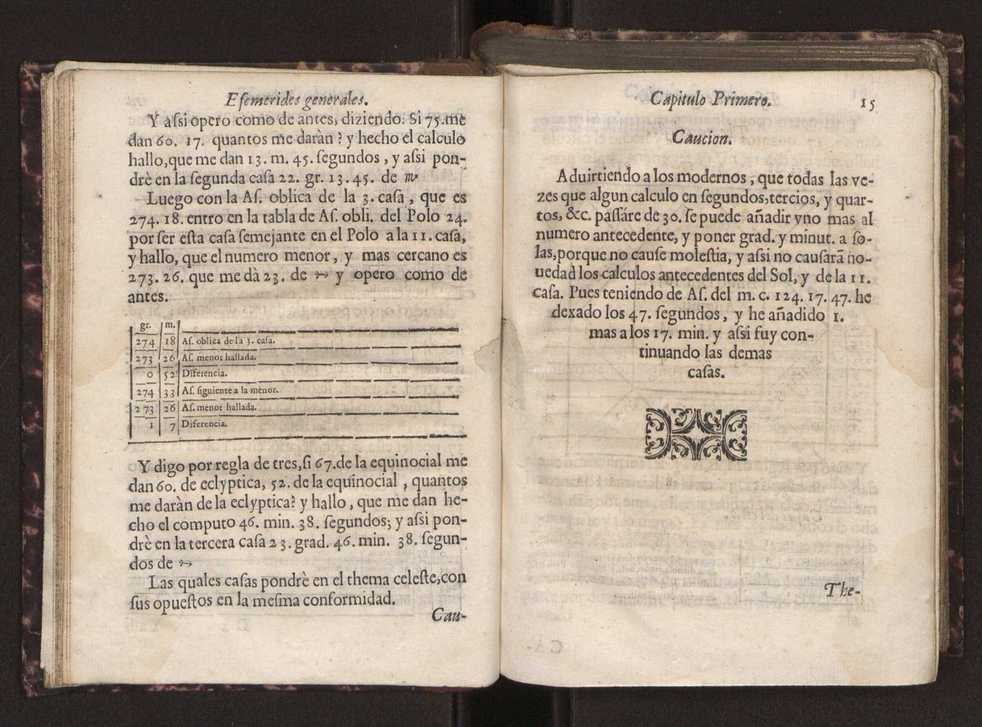 Efemerides generales.
Y aſsi opero como de antes, diziendo: Si 75. me
dan 60. 17. quantos me daràn? y hecho el calculo
hallo, que me dan 13. m. 45. ſegundos, y aſsi pon-
drè en la ſegunda caſa 22. gr. 13. 45. de ♏
Luego con la Aſ. oblica de la 3. caſa, que es
274. 18. entro en la tabla de Aſ. obli. del Polo 24.
por ſer eſta caſa ſemejante en el Polo a la 11. caſa,
y hallo, que el numero menor, y mas cercano es
273. 26. que me dà 23. de ♐ y opero como de
antes.
gr. m.
274 18 Aſ. oblica de la 3. caſa.
273 26 Aſ. menor hallada.
0 52 Diferencia.
274 33 Aſ. ſiguiente a la menor.
273 26 Aſ. menor hallada.
1 7 Diferencia.
Y digo por regla de tres, ſi 67. de la equinocial me
dan 60. de eclyptica, 52. de la equinocial, quantos
me daràn de la eclyptica? y hallo, que me dan he-
cho el computo 46. min. 38. ſegundos; y aſsi pon-
drè en la tercera caſa 23. grad. 46. min. 38. ſegun-
dos de ♐
Las quales caſas pondrè en el thema celeſte, con
ſus opueſtos en la meſma conformidad.
Cau-
Capitulo Primero. 15
Caucion.
Aduirtiendo a los modernos, que todas las ve-
zes que algun calculo en ſegundos, tercios, y quar-
tos, &c. paſſàre de 30. ſe puede añadir vno mas al
numero antecedente, y poner grad. y minut. a ſo-
las, porque no cauſe moleſtia, y aſsi no cauſarà no-
uedad los calculos antecedentes del Sol, y de la 11.
caſa. Pues teniendo de Aſ. del m. c. 124. 17. 47. he
dexado los 47. ſegundos, y he añadido 1.
mas a los 17. min. y aſsi fuy con-
tinuando las demas
caſas.
The-